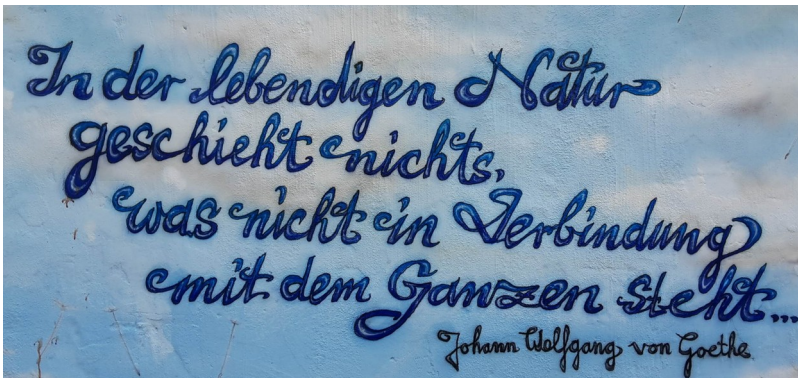 In der lebendigen Natur
geschieht nichts,
was nicht in Verbindung
mit dem Ganzen steht...
Johann Wolfgang von Goethe